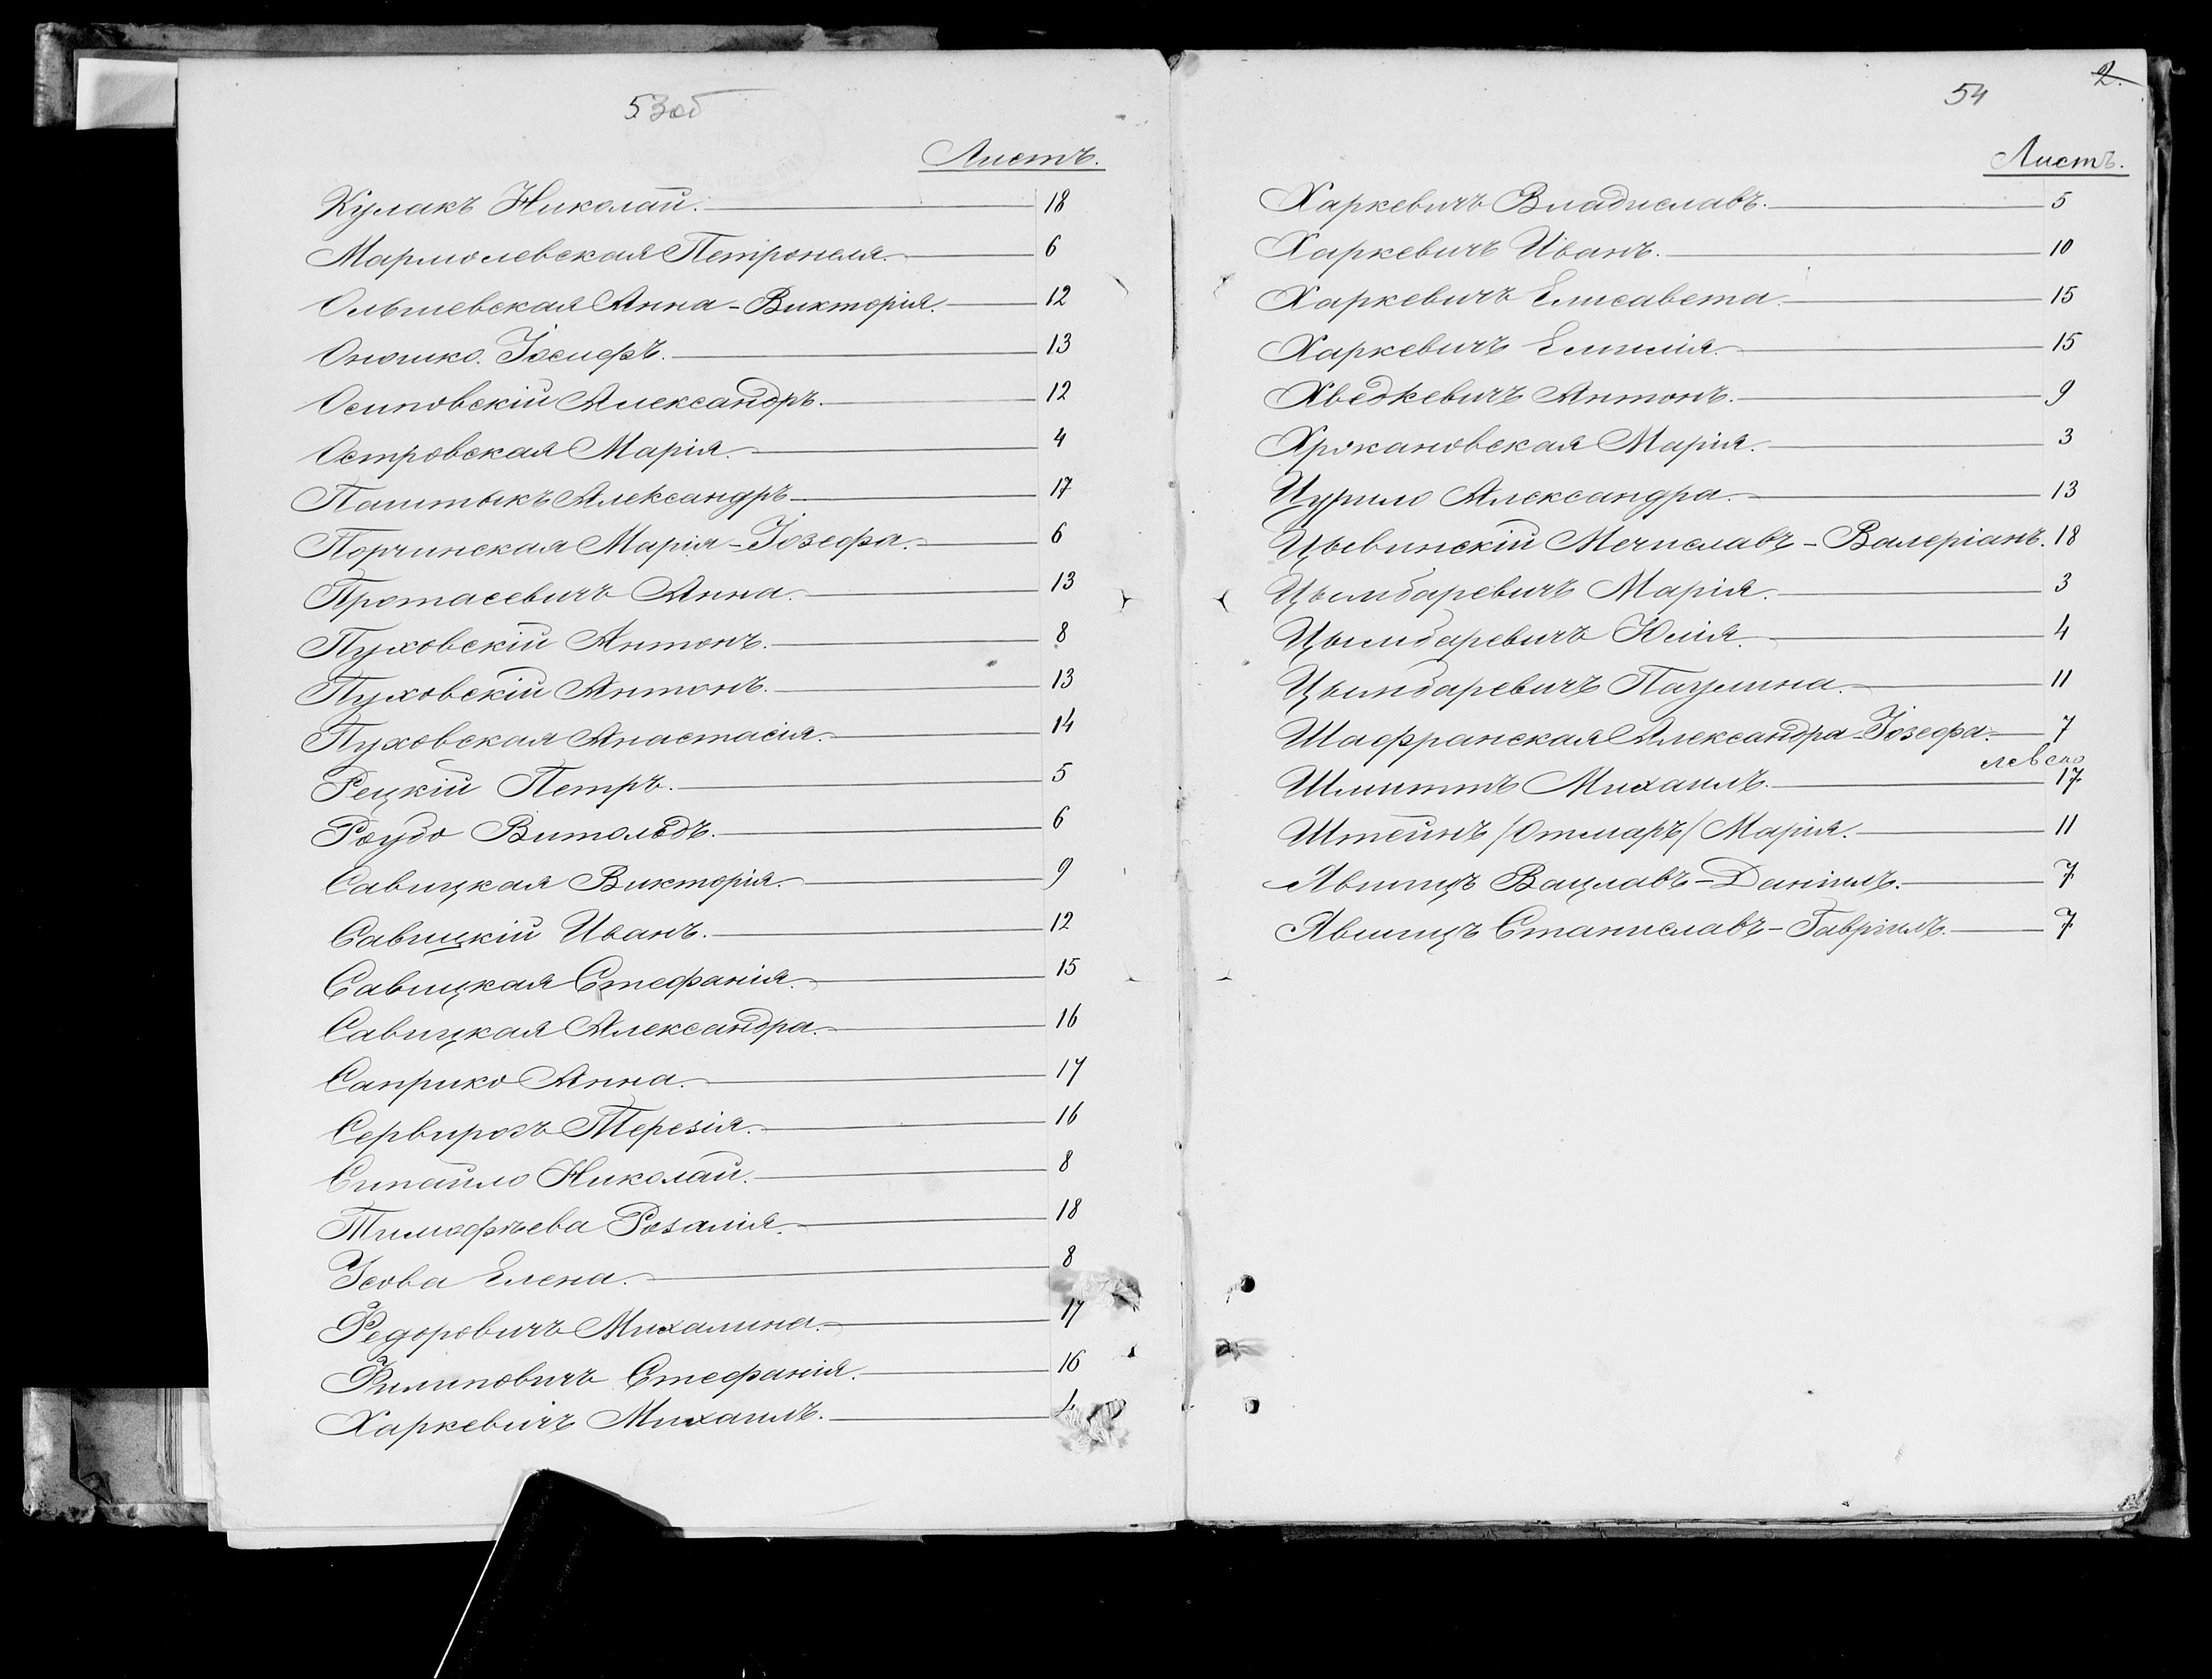 53об
Листъ.
Кулакъ Николай. 18
Мармолевская Петронеля. 6
Ольшевская Анна-Викторія. 12
Оношко Іосифъ. 13
Осиповскій Александръ. 12
Островская Марія. 4
Паштыкъ Александръ 17
Порчинская Марія-Іозефа. 6
Протасевичъ Анна. 13
Пуховскій Антонъ. 8
Пуховскій Антонъ. 13
Пуховская Анастасія. 14
Рецкій Петръ. 5
Роудо Витольдъ. 6
Савицкая Викторія. 9
Савицкій Иванъ. 12
Савицкая Стефанія. 15
Савицкая Александра. 16
Саприко Анна. 17
Сервирогъ Терезія. 16
Сипайло Николай. 8
Тимофѣева Розалія. 18
Усова Елена. 8
Федоровичъ Михалина. 17
Филиповичъ Стефанія. 16
Харкевичъ Михаилъ.
54
2.
Листъ.
Харкевичъ Владиславъ. 5
Харкевичъ Иванъ. 10
Харкевичъ Елисавета. 15
Харкевичъ Емилія. 15
Хведкевичъ Антонъ. 9
Хржановская Марія. 3
Цурило Александра. 13
Цывинскій Мечиславъ-Валеріанъ. 18
Цымбаревичъ Марія. 3
Цымбаревичъ Юлія. 4
Цымбаревичъ Паулина. 11
Шафранская Александра-Іозефа. 7
Шмиттъ Михаилъ. 17
Штейнъ /Отмаръ/ Марія. 11
Явшицъ Вацлавъ-Даніилъ. 7
Явшицъ Станиславъ-Гавріилъ. 7